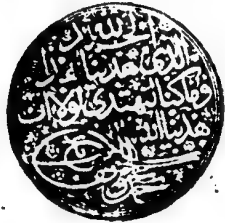 الحمد لله
الذي هدينا لهذا
وما كنا لنهتدي لولا ان
هدينا الله
محمد